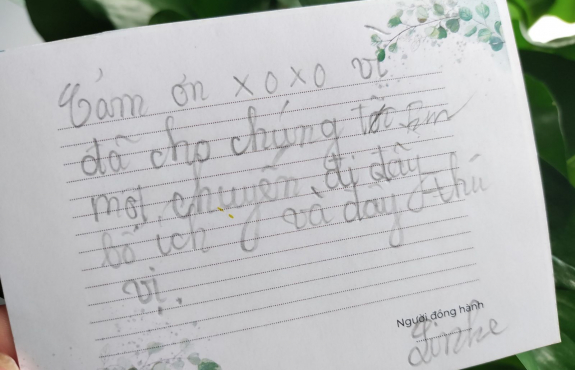 Cảm ơn xoxo vì
đã cho chúng
một chuyến đi đầy
bổ ích và đầy thú
vị.
Người đồng hành